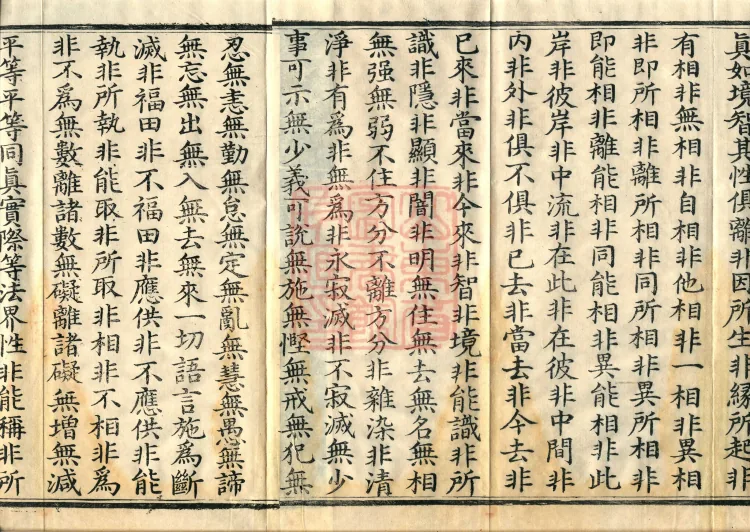 真如境智其性俱離非因所生非緣所起非
有相非無相非自相非他相非一相非異相
非即所相非離所相非同所相非異所相非
即能相非離能相非同能相非異能相非此
岸非彼岸非中流非在此非在彼非中間非
內非外非俱不俱非已去非當去非今去非
已來非當來非今來非智非境非能識非所
識非隱非顯非闇非明無住無去無名無相
無强無弱不住方分不離方分非雜染非清
淨非有為非無為非永寂滅非不寂滅無少
事可示無少義可說無施無慳無戒無犯無
忍無恚無勤無怠無定無亂無慧無愚無諦
無妄無出無入無去無來一切語言施為斷
滅非福田非不福田非應供非不應供非能
執非所執非能取非所取非相非不相非為
非不為無數離諸數無礙離諸礙無增無減
平等平等同真實際等法界性非能稱非所